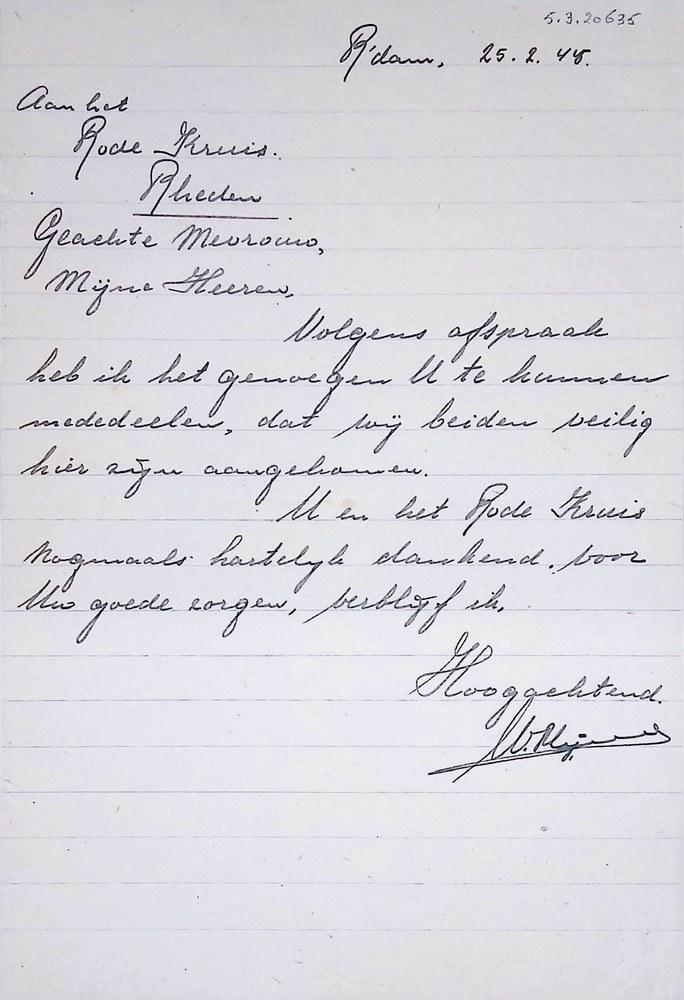 5.3.20635
R'dam, 25.2.45.
Aan het
Rode Kruis.
Rheden
Geachte Mevrouw,
Mijne Heeren,
Volgens afspraak
heb ik het genoegen U te kunnen
mededeelen, dat wij beiden veilig
hier zijn aangekomen.
U en het Rode Kruis
nogmaals hartelijk dankend voor
Uw goede zorgen, verblijf ik,
Hoogachtend.